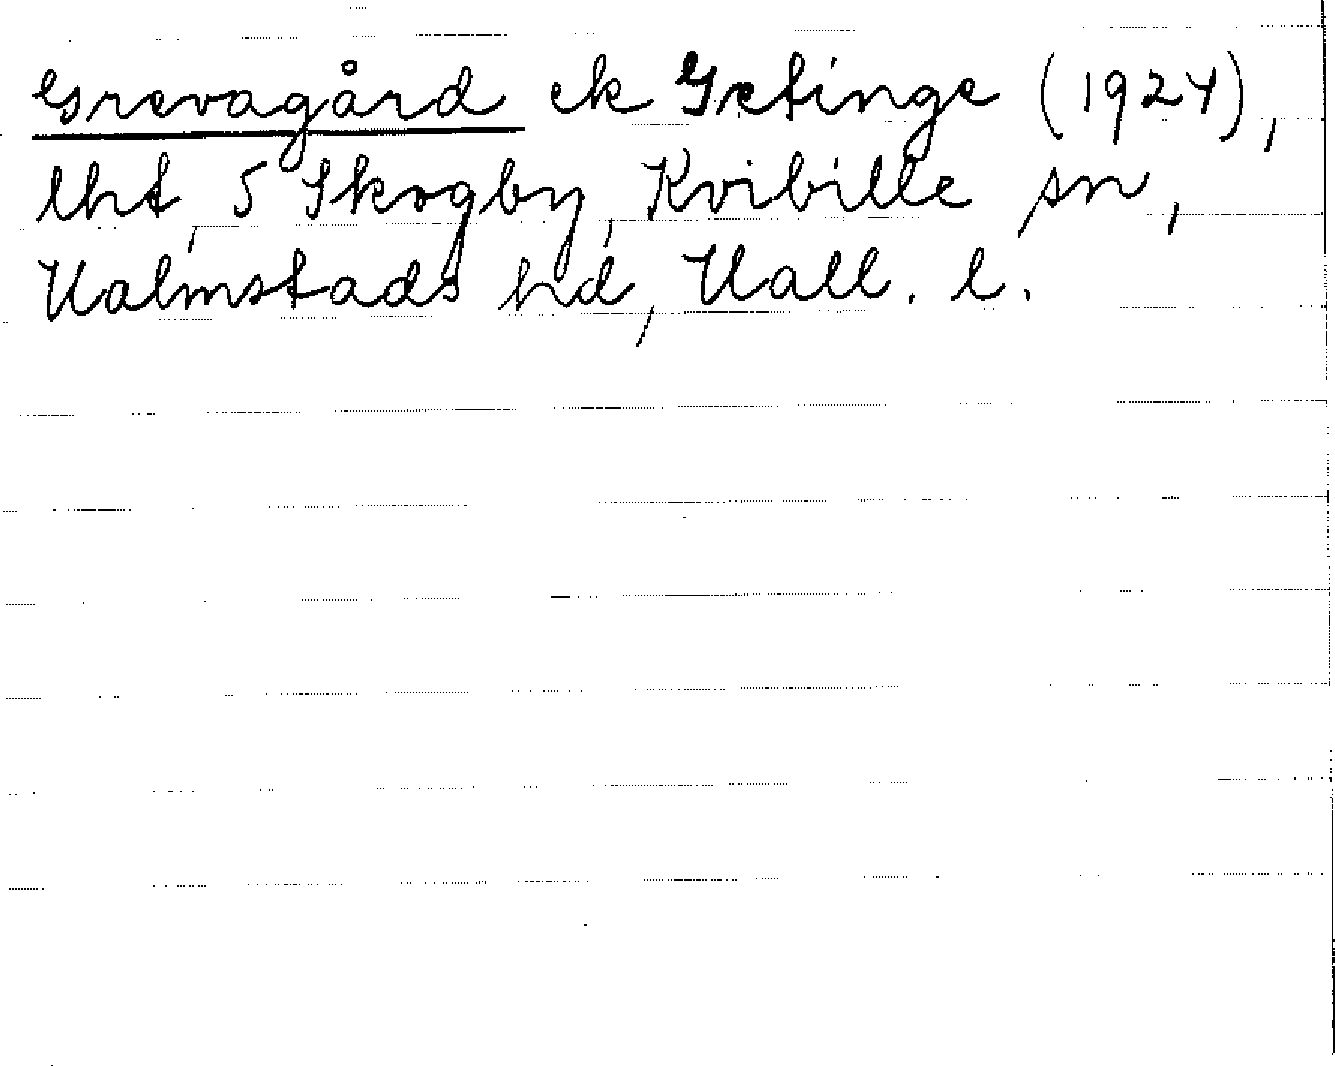 Grevagård ek Getinge (1924),
lht, 5 Skogby, Kvibille sn,
Halmstads hd, Hall. l.